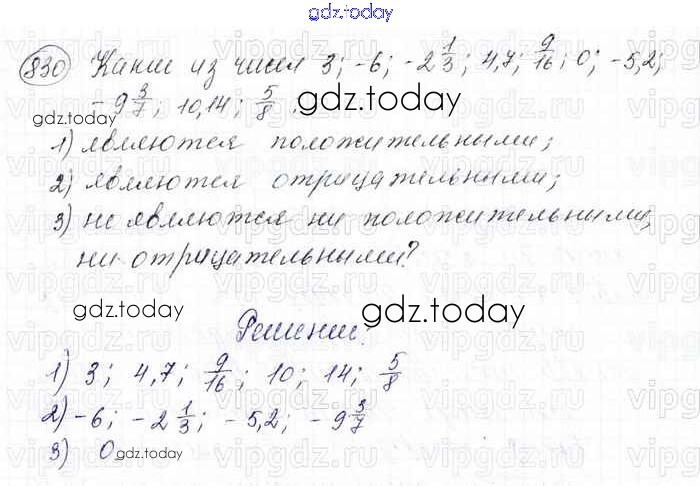 gdz.today
830 Какие из чисел 3; -6; -2 1/3; 4,7; 9/16; 0; -5,2;
-9 3/7; 10,14; 5/8.
gdz.today
gdz.today
1) являются положительными;
2) являются отрицательными;
3) не являются ни положительными,
ни отрицательными?
gdz.today
gdz.today
Решение:
1) 3; 4,7; 9/16; 10; 14; 5/8
2) -6; -2 1/3; -5,2; -9 3/7
3) 0
gdz.today